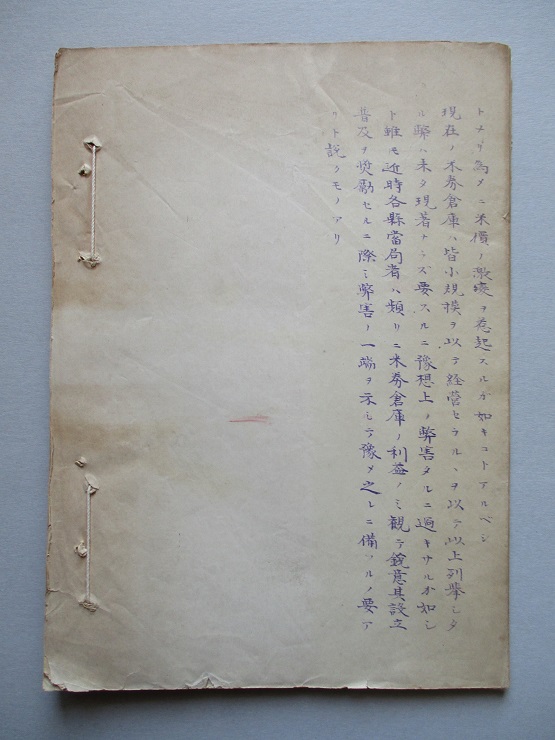 トナリ為メニ米價ノ激変ヲ惹起スルカ如キコトアルベシ
現在ノ米券倉庫ハ皆小規模ヲ以テ経営セラルヽヲ以テ以上列挙シタ
ル弊ハ未タ現著ナラズ要スルニ豫想上ノ弊害タルニ過キサルカ如シ
ト雖モ近時各縣當局者ハ頻リニ米券倉庫ノ利益ノミ観テ鋭意其設立
普及ヲ奨勵セルニ際シ弊害ノ一端ヲ示シテ豫メ之レニ備フルノ要ア
リト説クモノアリ